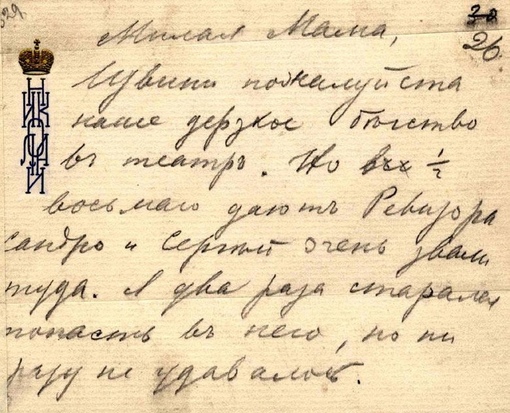 329.
38
26.
Милая Мама,
НИКОЛАЙ
Извини пожалуйста
наше дерзкое бѣгство
въ театръ. Но въ ½
восьмаго даютъ Ревизора
Сандро и Сергѣй очень звали
туда. Я два раза старался
попасть въ него, но ни
разу не удавалось.